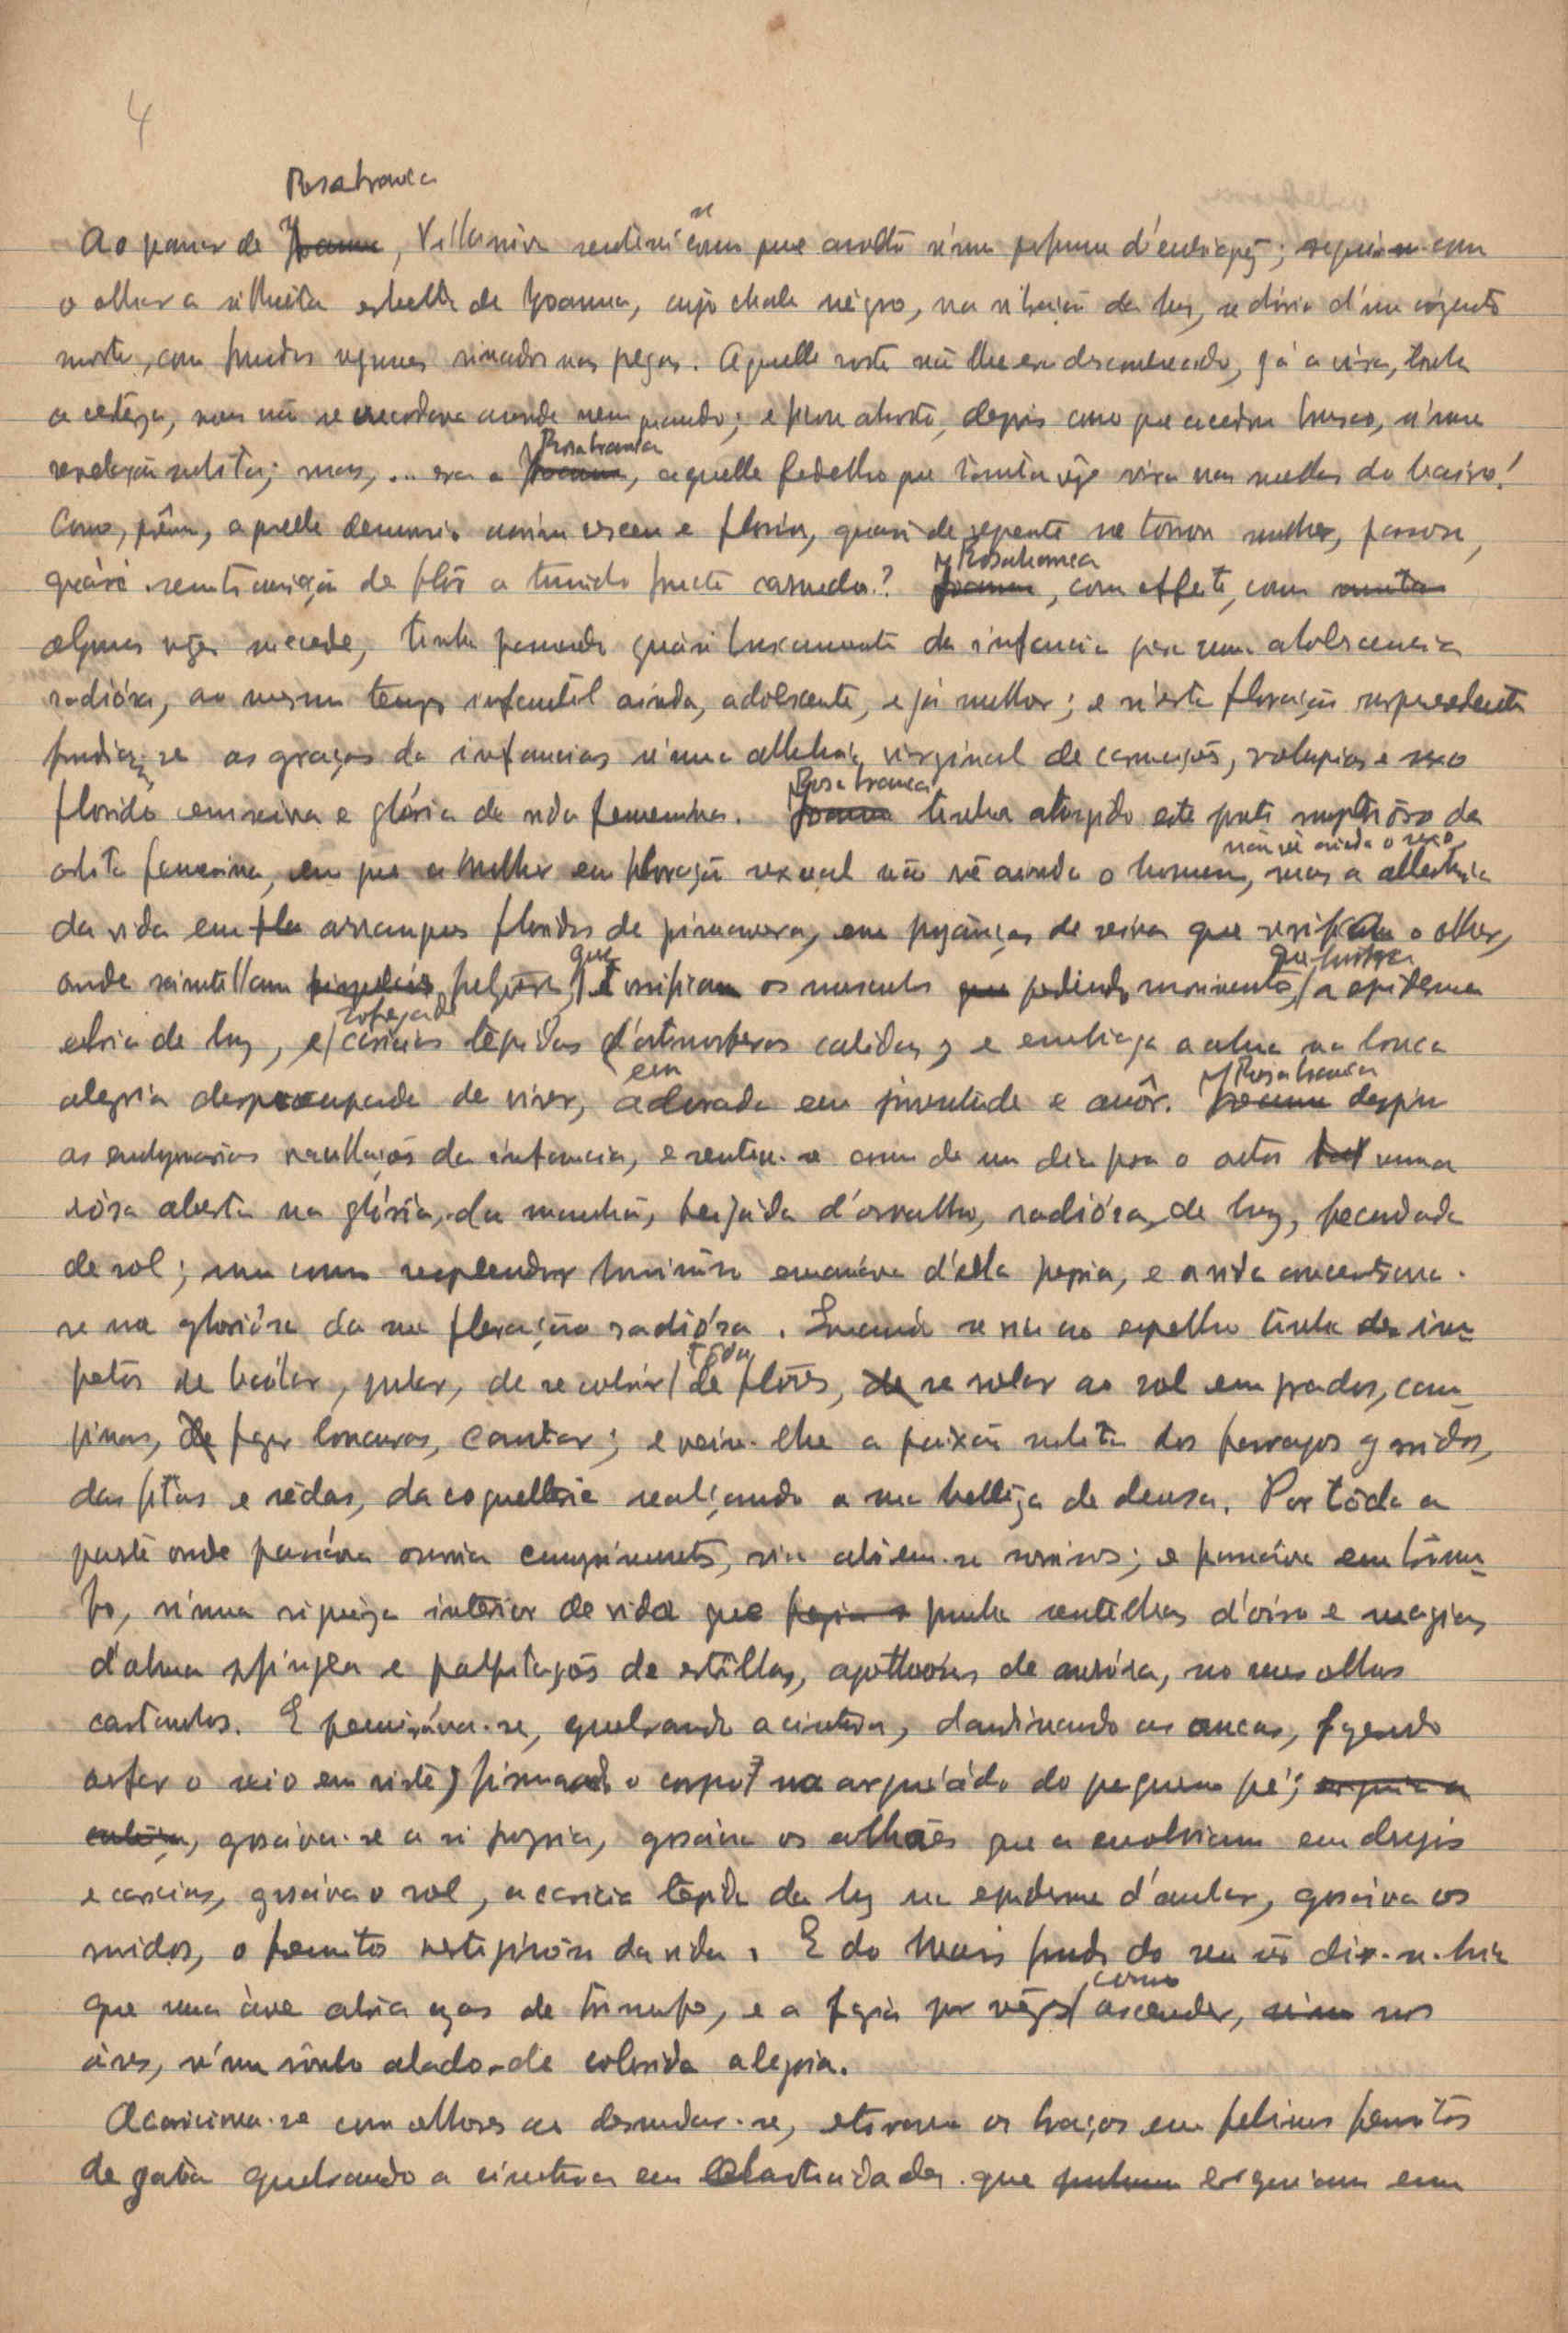 4
Rosabranca
Ao passar de Joanna, Villanova sentiu-se como que envolto n'um perfume d'embriaguez; seguiu-a com
o olhar a silhueta esbelta de Joanna, cujo chale negro, na vibração da luz, se diria d'um
morto, com fundos negrumes sinuados nas pregas. Aquelle rosto não lhe era desconhecido, já a vira, tinha
a certeza, mas não se recordava aonde nem quando; e ficou absorto, depois como que acordou brusco, n'uma
Rosabranca
revelação subita; mas, ... era a Joanna, aquelle fedelho que tanta vez vira nas ruellas do bairro!
Como, porêm, aquelle demonio assim cresceu e floriu, quasi de repente se tornou mulher, passou,
Rosabranca
quási sem transição de flôr a tumido fructo carnudo? Joanna, com effeito, como muitas
algumas vezes succede, tinha passado quási bruscamente da infancia para uma adolescencia
radiósa, ao mesmo tempo infantil ainda, adolescente, e já mulher; e n'esta floração surprehendente
fundiam-se as graças da infancia n'uma alleluia virginal de carnações, volupias e sexo
Rosabranca
florido em seiva e glória de vida femenina. Joanna tinha atingido este ponto da
não vê ainda o sexo
orbita femenina, em que a mulher em floração sexual não vê ainda o homem, mas a alleluia
da vida em flo arranques floridos de primavera, em pujanças de seiva que o olhar,
que que lustra
onde scintillam fulgôres, tonificam os musculos que pedindo movimento, a epiderme
ebria de luz, e caricias tépidas d'atmosferas calidas, e embriaga a alma na louca
em Rosabranca
alegria despreoccupada de viver, adorada em juventude e amôr. Joanna despiu
as da infancia, e sentiu-se como de um dia para o outro tal uma
rósa aberta na glória da manhã, beijada d'orvalho, radiósa de luz, fecundada
de sol; um como resplendor luminôso emanáva d'ella propria, e a vida concentrava-
se na gloriósa da sua floração radiósa. Quando se via ao espelho tinha de im-
tôda
petos de bailar, pular, de se cobrir de flôres, de se rolar ao sol em prados, cam-
pinas, de fazer loucuras, cantar; e veiu-lhe a paixão subita dos farrapos garridos,
das fitas e sêdas, da coquetterie realçando a sua belleza de deusa. Por tôda a
parte onde passáva ouvia cumprimentos, via abrirem-se sorrisos; e passáva em triun-
fo, n'uma riqueza interior de vida que fazia a punha centelhas d'oiro e magias
d'alma sfingea e palpitações de estrêllas, apotheoses de auróra, nos seus olhos
castanhos. E peneiráva-se, quebrando a cintura, dandinando as ancas, fazendo
arfar o seio em riste, firmando o corpo na arqueádo do pequeno pé; erguia a
cabeça, gosáva-se a si propria, gosáva os olháres que a envolviam em desejos
e caricias, gosáva o sol, a caricia tepida da luz na epiderme d'ambar, gosáva os
ruidos, o fremito vertiginôso da vida. E do mais fundo do seu sêr dir-se-hia
como
que uma áve abria azas de triumfo, e a fazia por vêzes ascender, nos
áres, n'um sônho alado de colorida alegria.
Acariciava-se com olhares ao desnudar-se, estirava os braços em felinos fremitos
de gata quebrando a cintura em elasticidades que punham erguiam em